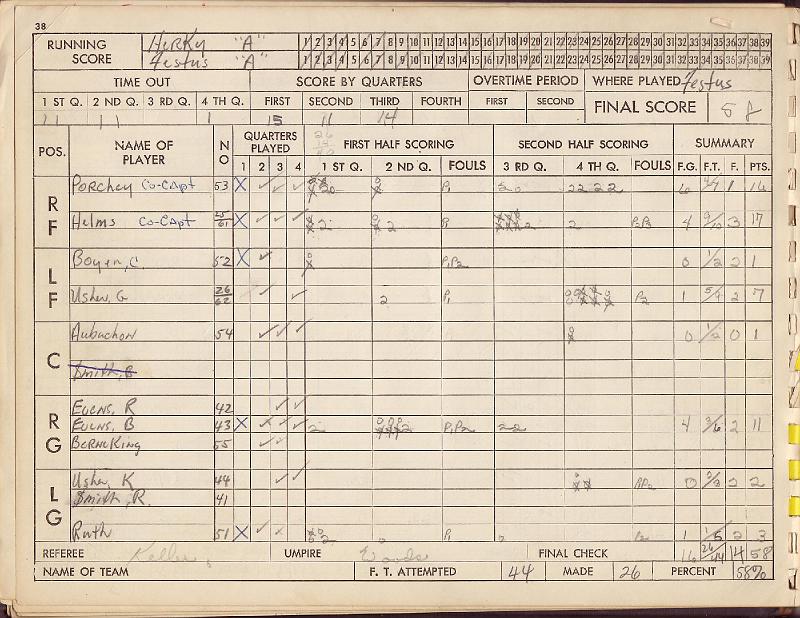 38
RUNNING SCORE
Herky "A" 1 2 3 4 5 6 7 8 9 10 11 12 13 14 15 16 17 18 19 20 21 22 23 24 25 26 27 28 29 30 31 32 33 34 35 36 37 38 39
Festus "A" 1 2 3 4 5 6 7 8 9 10 11 12 13 14 15 16 17 18 19 20 21 22 23 24 25 26 27 28 29 30 31 32 33 34 35 36 37 38 39
TIME OUT SCORE BY QUARTERS OVERTIME PERIOD WHERE PLAYED Festus
1 ST Q. 2 ND Q. 3 RD Q. 4 TH Q. FIRST SECOND THIRD FOURTH FIRST SECOND FINAL SCORE 58
15 11 14
POS. NAME OF PLAYER NO QUARTERS PLAYED FIRST HALF SCORING SECOND HALF SCORING SUMMARY
1 2 3 4 1 ST Q. 2 ND Q. FOULS 3 RD Q. 4 TH Q. FOULS F.G. F.T. F. PTS.
RF
Porchey Co-Capt 53 X P1 22 22 6 4/7 1 16
Helms Co-Capt 25/61 X 2 2 2 4 9/12 3 17
LF
Boyer, C. 52 X P1P2 0 1/2 2 1
Usher, G 26/62 2 P1 P2 1 5/9 2 7
C
Aubuchon 54 0 1/2 0 1
Smith, B
RG
Evens, R 42
Evens, B 43 X 2 2 P1P2 22 4 3/6 2 11
Berne King 55
LG
Usher, K 44 0 2/2 2 2
Smith, R. 41
Ruth 51 X 2 P1 P2 1 1/5 2 3
REFEREE Keller UMPIRE Woods FINAL CHECK 16 26/44 14 58
NAME OF TEAM F. T. ATTEMPTED 44 MADE 26 PERCENT 58%